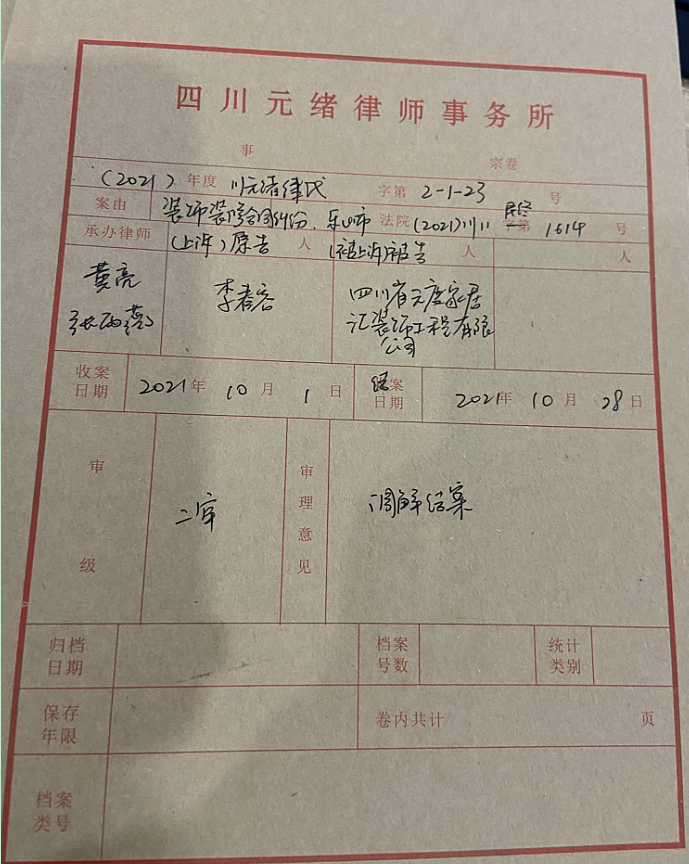 四川元绪律师事务所
事 宗卷
(2021) 年度 川元绪律民 字第 2-1-23 号
案由 装饰装修合同纠纷 乐山市 法院 (2021)川11 民终 1614 号
承办律师 (上诉)原告 人 (被上诉)被告 人 人
黄亮 李春容 四川省元度家居
汇装饰工程有限
公司
收案 结案
日期 2021年 10月 1日 日期 2021年 10月 28日
审 审
二审 理 调解结案
意
级 见
归档 档案 统计
日期 号数 类别
保存 卷内共计 页
年限
档案
类号